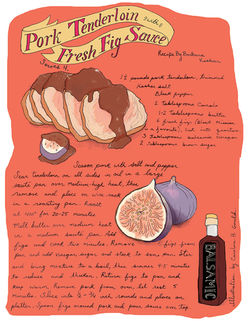 Pork Tenderloin with a
Fresh Fig Sauce
Serves 4
Recipe By Barbara
1½ pounds pork tenderloin, trimmed
Kosher salt
Black pepper
2 Tablespoons Canola
1-2 Tablespoons butter
6 fresh figs (Black Mission
is a favorite), cut into quarters
3 Tablespoons balsamic vinegar
2 Tablespoons brown sugar
Season pork with salt and pepper
Sear tenderloin on all sides in oil in a large
sauté pan over medium-high heat, then
remove and place on wire rack
in a roasting pan. Roast
at 400° for 20-25 minutes
Melt butter over medium heat
in a medium sauté pan. Add
figs and cook two minutes. Remove figs from
pan and add vinegar, sugar and stock to same pan. Stir
and bring mixture to a boil, then simmer 4-5 minutes
to reduce and thicken. Return figs to pan and
keep warm. Remove pork from oven, let rest 5
minutes. Slice into ½ - ¾ inch rounds and place on
platter. Spoon figs around pork and pour sauce on top.
BALSAMIC
Illustration by Carolyn H.